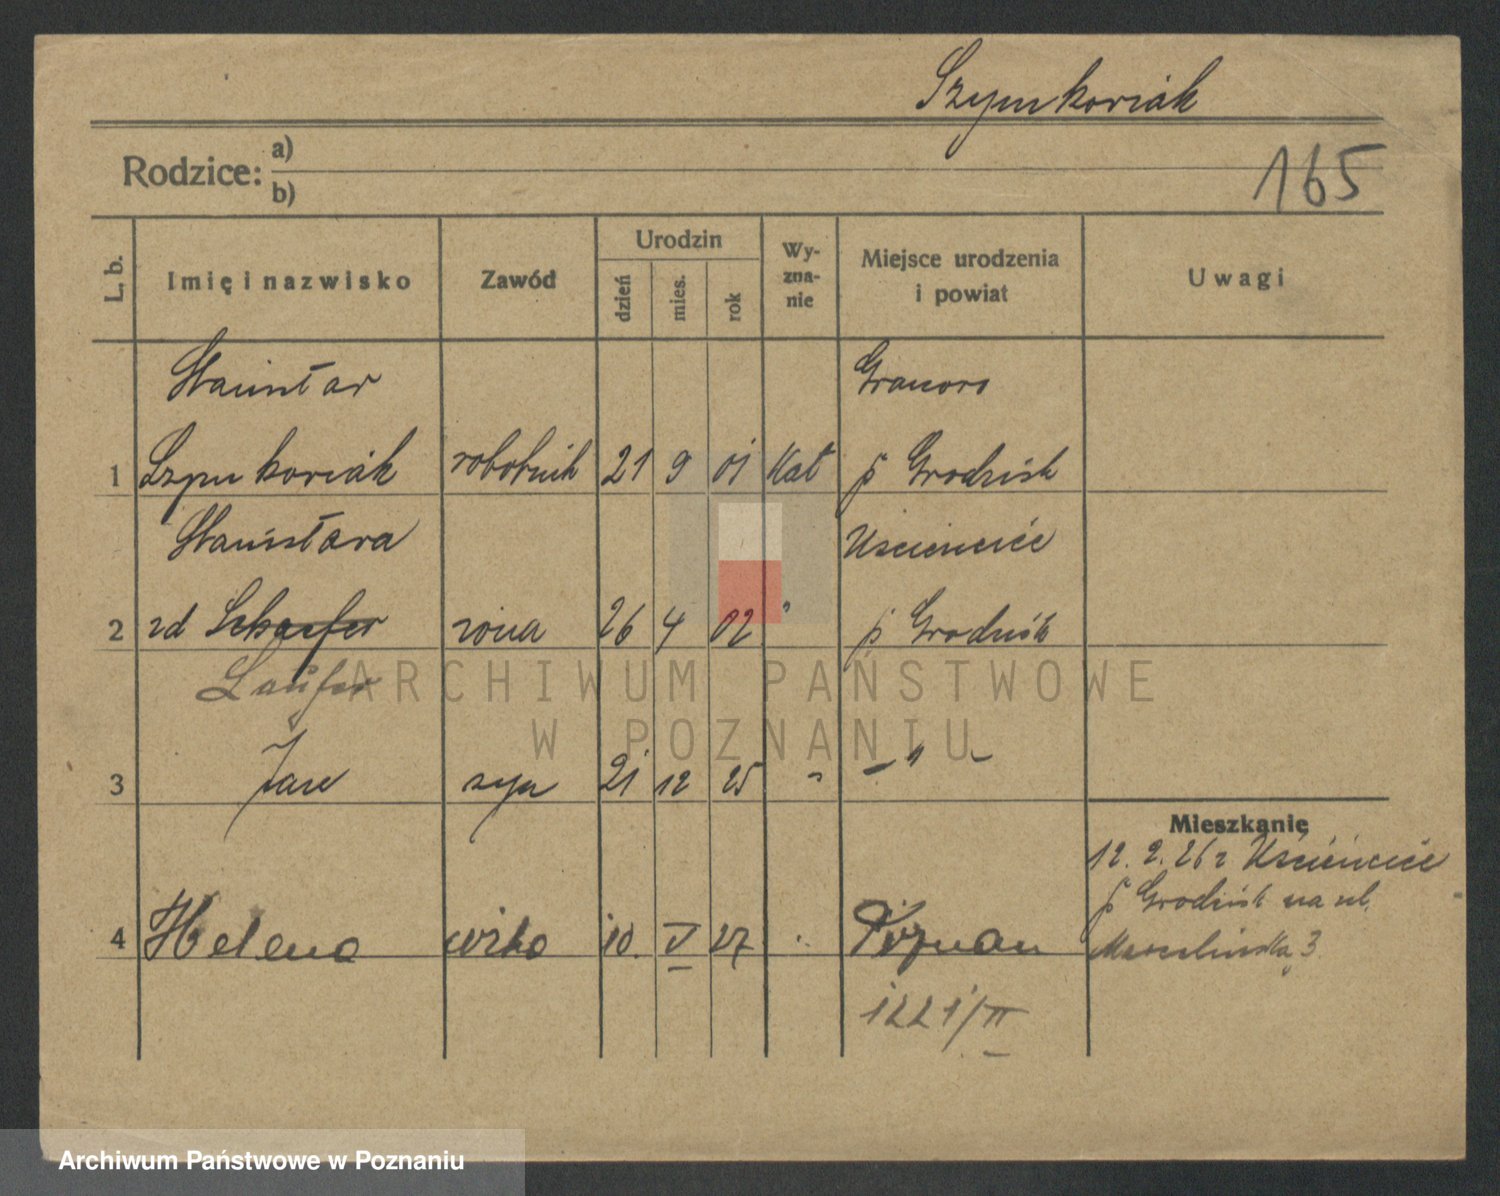 Szymkowiak
Rodzice: a)
b)
165
L. b.
Imię i nazwisko
Zawód
Urodzin
dzień
mies.
rok
Wy-
zna-
nie
Miejsce urodzenia
i powiat
Uwagi
Stanisław Granowo
1 Szymkowiak robotnik 21 9 01 Kat p Grodzisk
Stanisława Uścięcice
2 zd Schaefer żona 26 4 02 " p Grodzisk
Laufer
3 Jan syn 21 12 25 " - " -
Mieszkanie
12. 2. 26 z Uścięcice
p Grodzisk na ul.
4 Helena córka 10. V 27 " Poznań Marcelińska 3
1221/II
ARCHIWUM PAŃSTWOWE
W POZNANIU
Archiwum Państwowe w Poznaniu